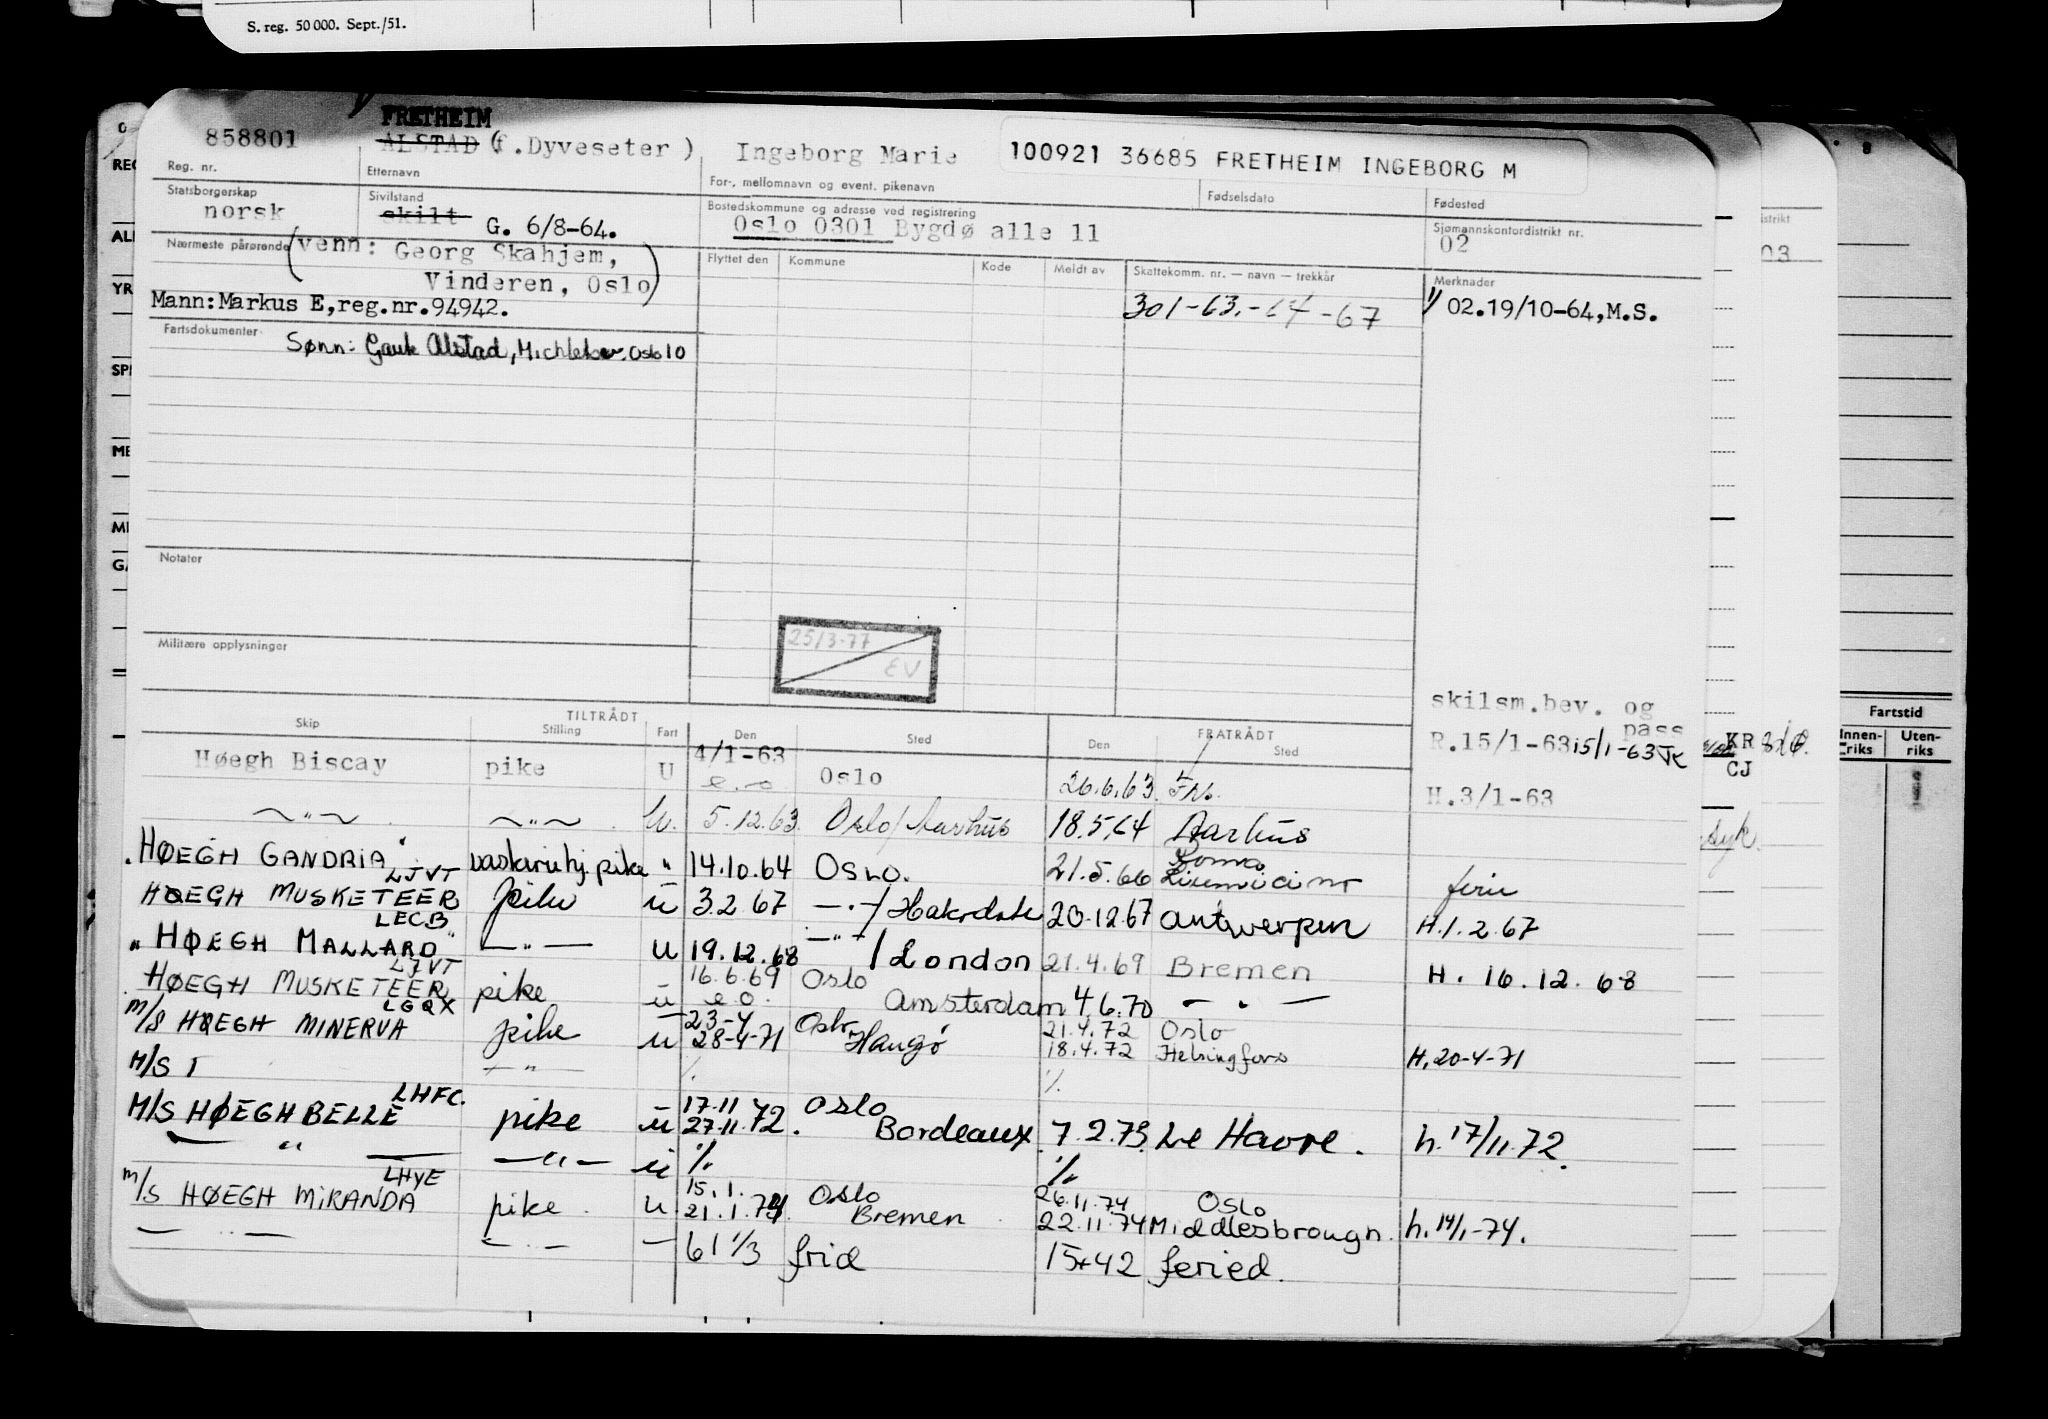 S. reg. 50 000. Sept./51.
858801
FRETHEIM
ALSTAD (f.Dyveseter)
Ingeborg Marie
100921 36685 FRETHEIM INGEBORG M
Reg. nr.
Etternavn
For-, mellomnavn og event. pikenavn
Fødselsdato
Fødested
Statsborgerskap
norsk
Sivilstand
skilt G. 6/8-64.
Bostedskommune og adresse ved registrering
Oslo 0301 Bygdø alle 11
Sjømannskontordistrikt nr.
02
Nærmeste pårørende
(venn: Georg Skahjem,
Vinderen, Oslo)
Mann:Markus E,reg.nr.94942.
Flyttet den
Kommune
Kode
Meldt av
Skattekomm. nr. — navn — trekkår
301-63.-64-67
Merknader
1/ 02.19/10-64,M.S.
Fartsdokumenter
Sønn: Gauk Alstad, Oslo 10
Notater
25/3-77
EV
Militære opplysninger
skilsm.bev. og
pass
R.15/1-63 15/1-63
H.3/1-63
TILTRÅDT
FRATRÅDT
Skip
Stilling
Fart
Den
Sted
Den
Sted
Høegh Biscay pike U 4/1-63 e.o Oslo 26.6.63.
—"— —"— U. 5.12.63. Oslo/Aarhus 18.5.64 Aarhus
HØEGH GANDRIA pike " 14.10.64 OSLO. 21.5.66 Roma ferie
LJVT
HØEGH MUSKETEER pike u 3.2.67 —"—/ 20.12.67 Antwerpen H.1.2.67
LECB
"HØEGH MALLARD" —"— u 19.12.68 —"—/London 21.4.69 Bremen H. 16.12.68
LJVT
HØEGH MUSKETEER pike u 16.6.69 e o. Oslo Amsterdam 4.6.70 — " —
LGQX
M/S HØEGH MINERVA pike u 23-4 28-4-71 Oslo Hangø 21.4.72 Oslo 18.4.72 Helsingfors H.20-4-71
M/S T —"— %. %.
LHFC.
M/S HØEGH BELLE pike u 17.11 27.11.72. Oslo Bordeaux 7.2.73. Le Havre. h.17/11.72.
— " — —"— u %. %.
LHYE
M/S HØEGH MIRANDA pike u 15.1. 21.1.74. Oslo Bremen 26.11.74 Oslo 22.11.74 Middlesbrough. h.14/1-74.
— " — — " — — 61 1/3 frid 15+42 feried.
Fartstid
Innenriks
Utenriks
KR
CJ